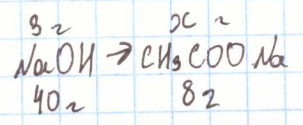 3 г x г
NaOH → CH3COONa
40 г 82